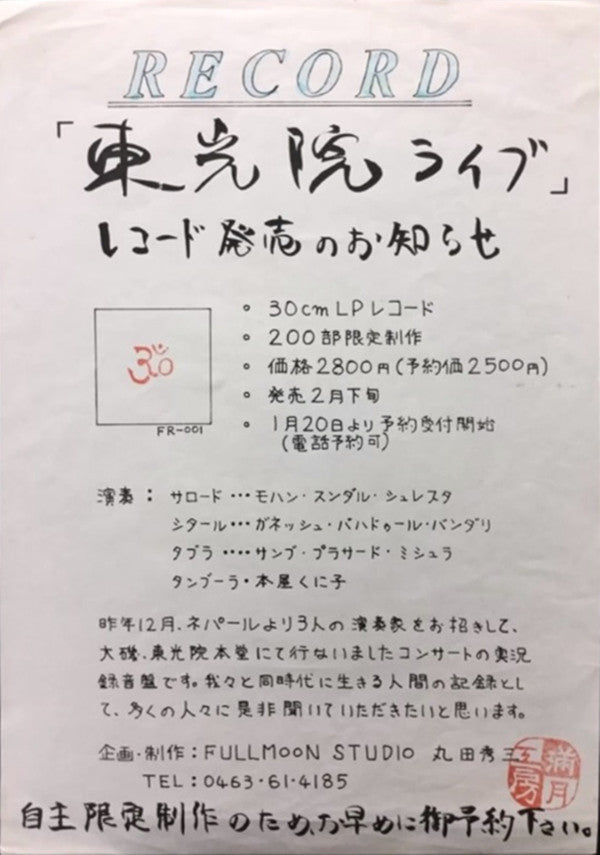 RECORD
「東光院ライブ」
レコード発売のお知らせ
ॐ
FR-001
• 30cm LPレコード
• 200部限定制作
• 価格2800円(予約価2500円)
• 発売2月下旬
• 1月20日より予約受付開始
(電話予約可)
演奏: サロード…モハン・スンダル・シュレスタ
シタール…ガネッシュ・バハドゥール・バンダリ
タブラ‥‥サンブ・プラサード・ミシュラ
タンブーラ・本屋くに子
昨年12月、ネパールより3人の演奏家をお招きして、
大磯、東光院本堂にて行ないましたコンサートの実況
録音盤です。我々と同時代に生きる人間の記録とし
て、多くの人々に是非聞いていただきたいと思います。
企画・制作:FULLMOON STUDIO 丸田秀三
TEL:0463・61・4185
満月工房
自主限定制作のため、お早めに御予約下さい。